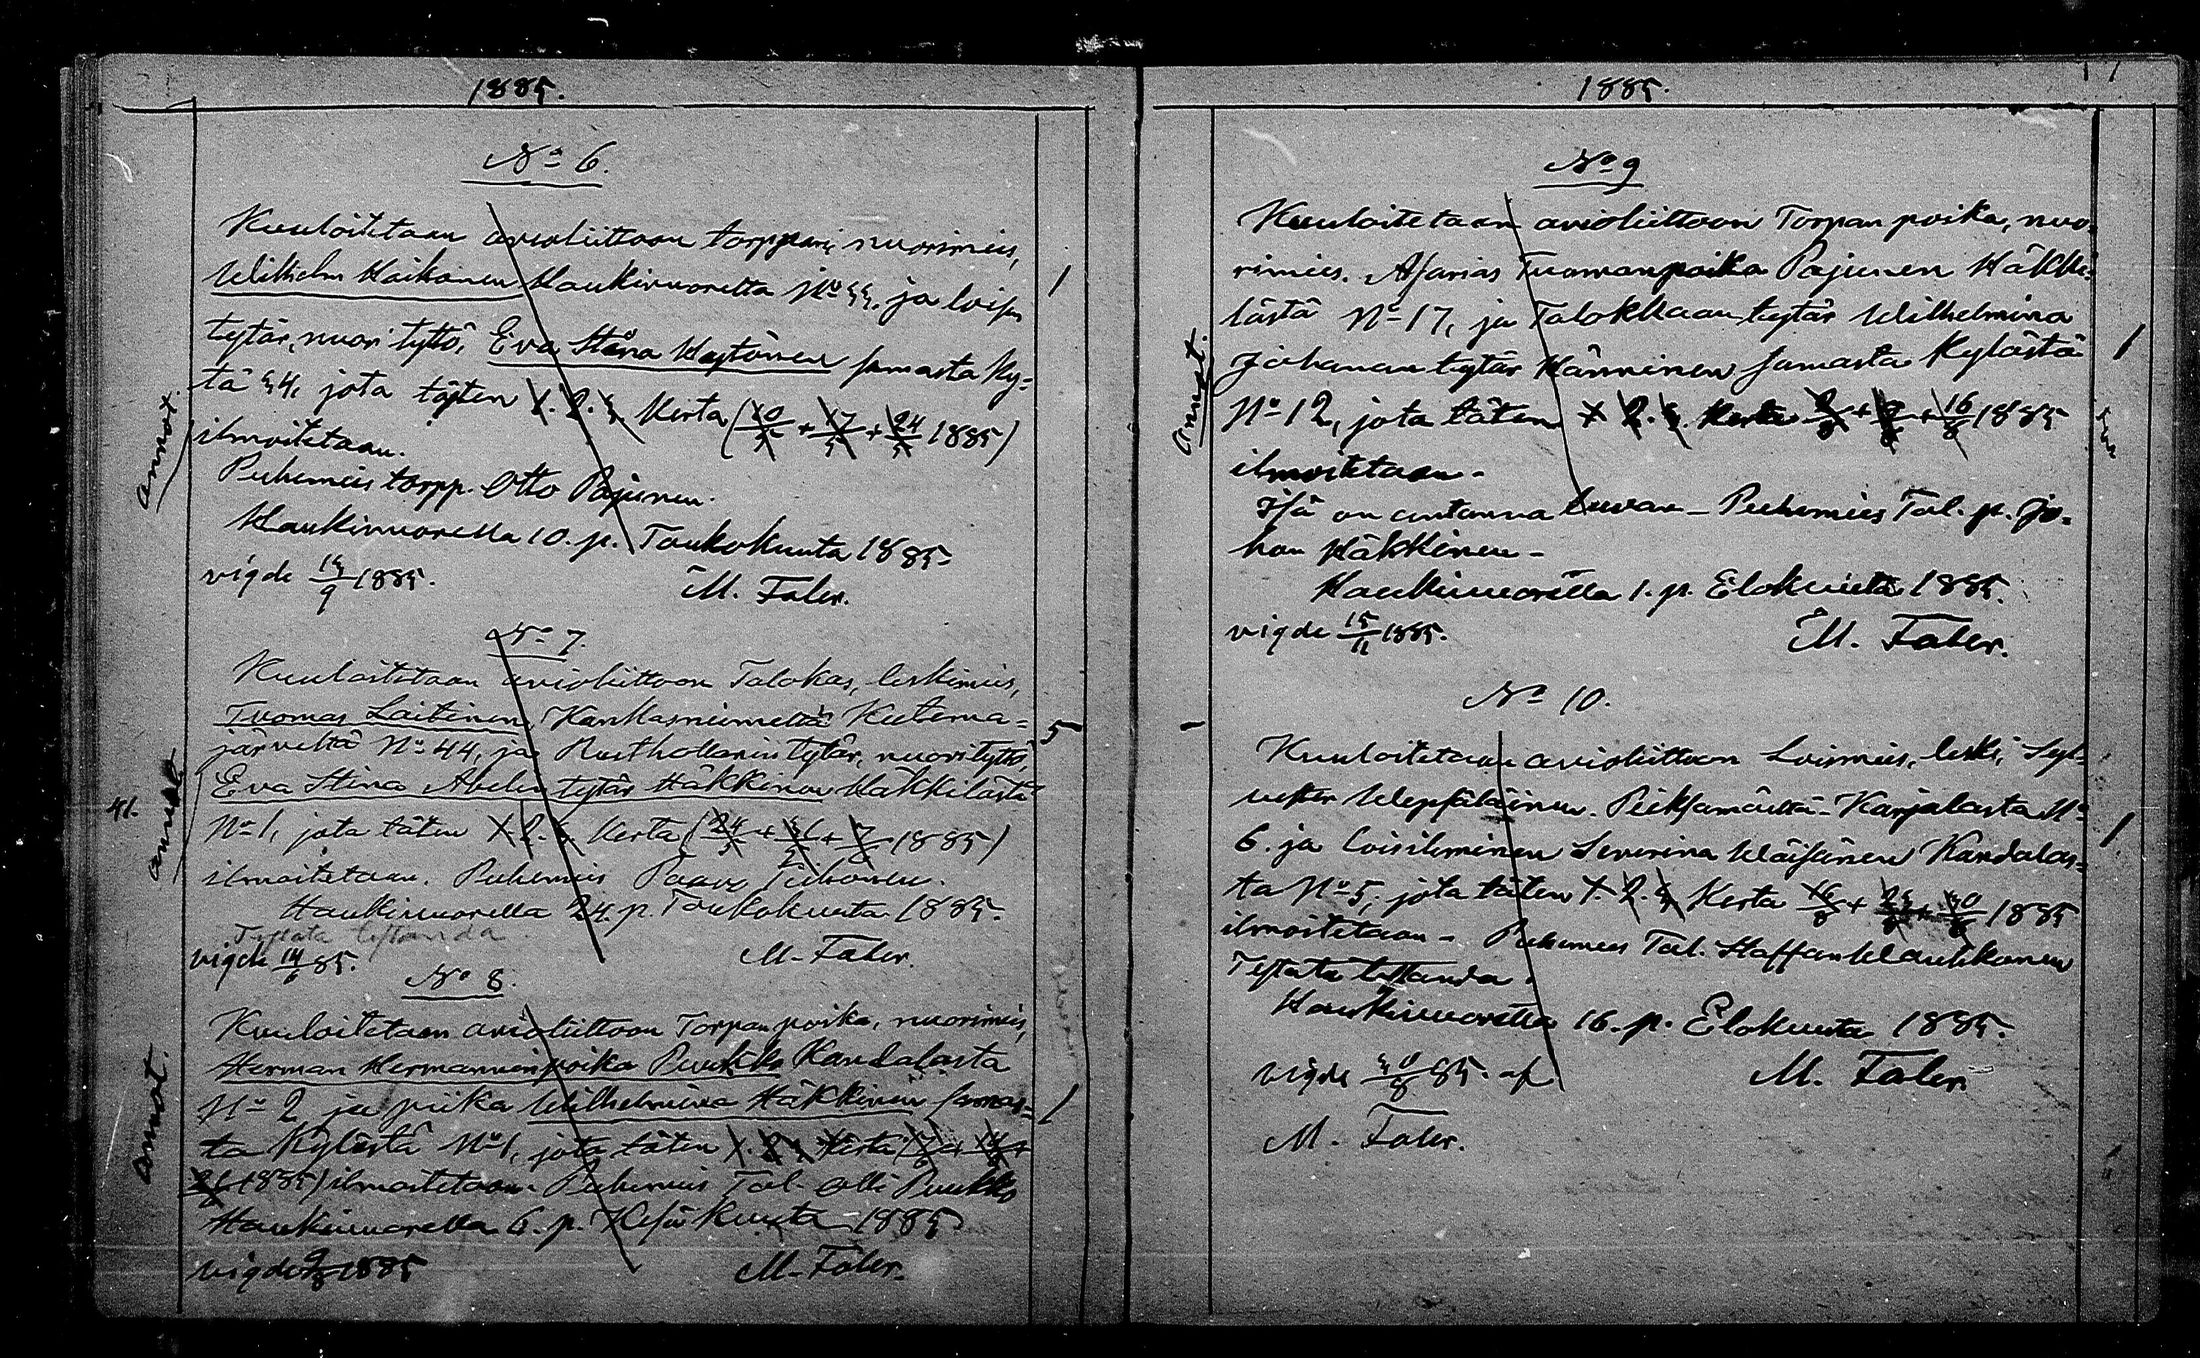 1885.
No 6.
Kuuloitetaan avioliittoon torppari nuorimies,
Wilhelm Haikonen Haukivuorelta No 33, ja lois
tytär, nuori tyttö, Eva Stina samasta Ky-
tä 34, jota täten 1. 2. 3. Kerta (10/5 + 17/5 + 24/5 1885)
ilmoitetaan.
Puhemies torpp. Otto Pajunen.
Haukivuorella 10. p. Toukokuuta 1885
vigde 13/9 1885.
M. Faler.
annot.
1
No 7.
Kuuloitetaan avioliittoon Talokas, leskimies,
Tuomas Laitinen, Kankasniemeltä Kutema-
järveltä No 44, ja Rusthollarin tytär, nuori tyttö,
Eva Stina Abelin tytär Häkkinen Häkkilästä
No 1, jota täten 1. 2. 3. Kerta (24/5 + 31/5 + 7/6 1885)
ilmoitetaan. Puhemies Paavo
Haukivuorella 24. p. Toukokuuta 1885.
vigde 14/6 85.
M. Faler.
41.
annot
5
No 8.
Kuuloitetaan avioliittoon Torpan poika, nuorimies,
Herman Hermannin poika Puukko Kandalasta
No 2 ja piika Wilhelmina Häkkinen samas-
ta Kylästä No 1, jota täten 1. 2. 3. Kerta
1885) ilmoitetaan. Puhemies Tal. Olli Puukko
Haukivuorella 6. p. Kesäkuuta 1885
vigde 1885
M. Faler.
annot.
1
1885.
17
No 9
Kuuloitetaan avioliittoon Torpan poika, nuo-
rimies. Asarias Tuomanpoika Pajunen Häkki-
lästä No 17, ja Talokkaan tytär Wilhelmina
Johanan tytär Hänninen samasta Kylästä
No 12, jota täten 1. 2. 3. Kerta 2/8 + 9/8 + 16/8 1885
ilmoitetaan.
Isä on antanna luvan - Puhemies Tal. p. Jo-
han Häkkinen -
Haukivuorella 1. p. Elokuuta 1885.
vigde 15/11 1885.
M. Faler.
Annot.
1
No 10.
Kuuloitetaan avioliittoon Loismies, leski, Syl-
vester Wepsäläinen. Pieksamäeltä - Karjalasta No
6. ja loisihminen Severina Väisänen Kandalas-
ta No 5, jota täten 1. 2. 3. Kerta 16/8 + 23/8 + 30/8 1885
ilmoitetaan - Puhemies Tal. Staffan
Haukivuorella 16. p. Elokuuta 1885.
vigde 30/8 85. af
M. Faler.
M. Faler.
1